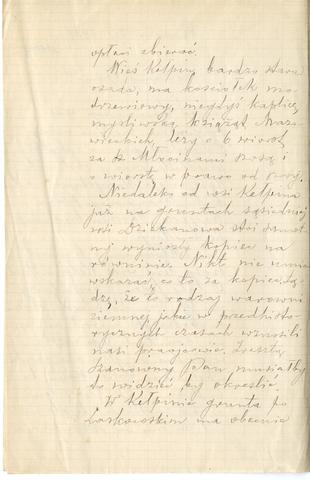 opłaci zbierać.
Wieś Kełpin, bardzo stara
osada, ma kościołek mo-
drzewiowy, niegdyś kaplicę
myśliwską książąt Mazo-
wieckich, leży o 6 wiorst
za Młocinami szosą i
o wiorstę w prawo od szosy.
Niedaleko od wsi Kełpina
już na gruntach sąsiedniej
wsi Dziekanowa stoi samot-
ny wyniosły kopiec na
równinie. Nikt nie umie
wskazać co to za kopiec. Są-
dzę, że to rodzaj warowni
ziemnej jakie w przedhisto-
rycznych czasach wznosili
nasi praojcowie. Zresztą
Szanowny Pan musiałby
to widzieć by określić.
W Kełpinie grunta po
ma obecnie